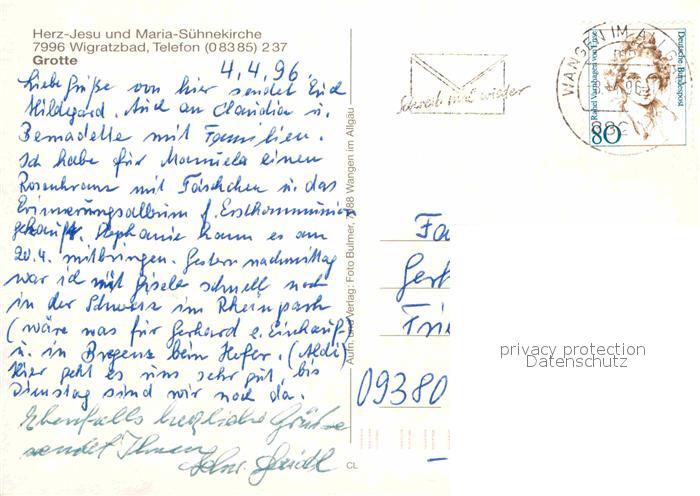 Herz-Jesu und Maria-Sühnekirche
7996 Wigratzbad, Telefon (0 83 85) 2 37
Grotte
4.4.96.
Liebe Grüße von hier sendet Euch
Hildegard. Auch an Claudia u.
Bernadette mit Familien.
Ich habe für Manuela einen
Rosenkranz mit Täschchen u. das
Erinnerungsalbum f. Erstkommunion
gekauft. Stephanie kann es am
20.4. mitbringen. Gestern nachmittag
war ich mit Gisela schnell noch
in der Schweiz im Rheinpark
(wäre was für Gerhard z. Einkauf-)
u. in Bregenz beim Hofer. (Aldi)
Hier geht es uns sehr gut, bis
Dienstag sind wir noch da.
Ebenfalls herzliche Grüße
sendet Ihnen
Aufn. und Verlag: Foto Bulmer, 7988 Wangen im Allgäu
CL
Schreib mal wieder
WANGEN IM ALLG
Rahel Varnhagen von Ense
Deutsche Bundespost
80
Fa
Ger
Frie
09380
privacy protection
Datenschutz